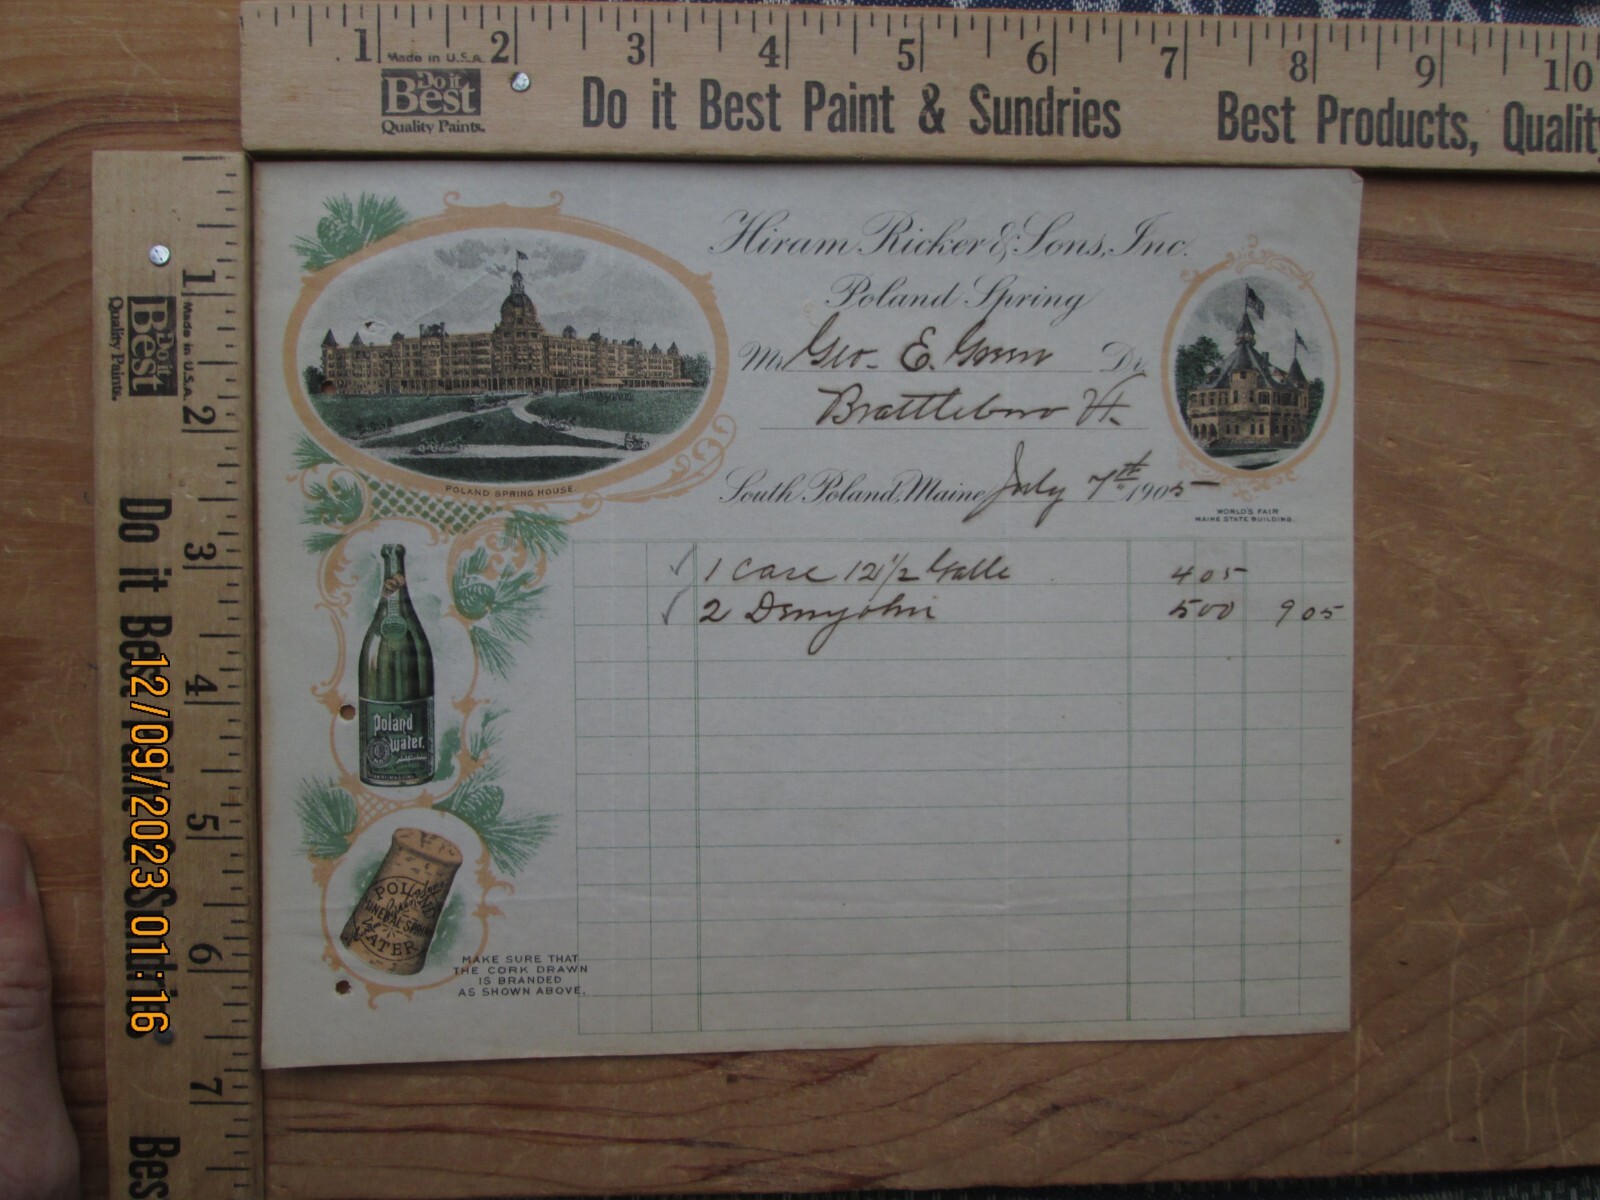 1 2 3 4 5 6 7 8 9 10
Made in U.S.A.
Do it
Best
Quality Paints.
Do it Best Paint & Sundries
Best Products, Quality
1 2 3 4 5 6 7
Made in U.S.A.
Do it
Best
Quality Paints.
Do it Best Paint Sundries
Bes
12/09/2023 01:16
Hiram Ricker & Sons, Inc.
Poland Spring
Mr Geo. E. Green Dr.
Brattleboro Vt.
South Poland, Maine July 7th 1905
POLAND SPRING HOUSE.
WORLD'S FAIR
MAINE STATE BUILDING.
1 Case 12 1/2 Galls 4 05
2 Demyohn 5 00 9 05
Poland
Water.
POLAND
MINERAL SPRING
WATER
MAKE SURE THAT
THE CORK DRAWN
IS BRANDED
AS SHOWN ABOVE.